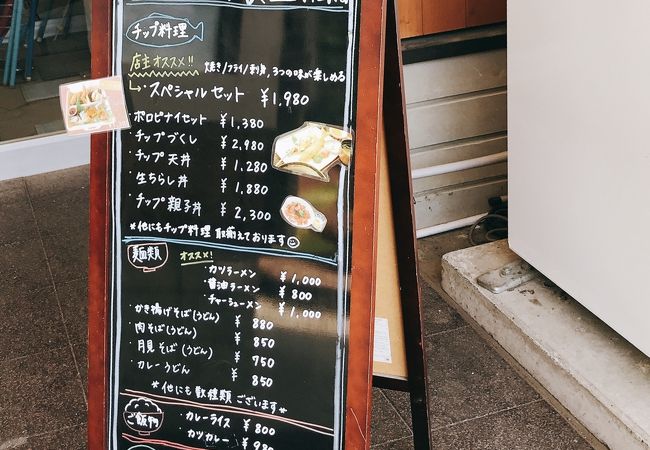 チップ料理
店主オススメ!!
焼き/フライ/刺身、3つの味が楽しめる
スペシャルセット ¥1,980
・ポロピナイセット ¥1,380
・チップづくし ¥2,980
・チップ天丼 ¥1,280
・生ちらし丼 ¥1,880
・チップ親子丼 ¥2,300
*他にもチップ料理取揃えております
麺類
オススメ!
・カツラーメン ¥1,000
・醤油ラーメン ¥800
・チャーシューメン ¥1,000
・かき揚げそば(うどん) ¥880
・肉そば(うどん) ¥850
・月見そば(うどん) ¥750
・カレーうどん ¥850
*他にも数種類ございます*
ご飯物
・カレーライス ¥800
・カツカレー ¥980